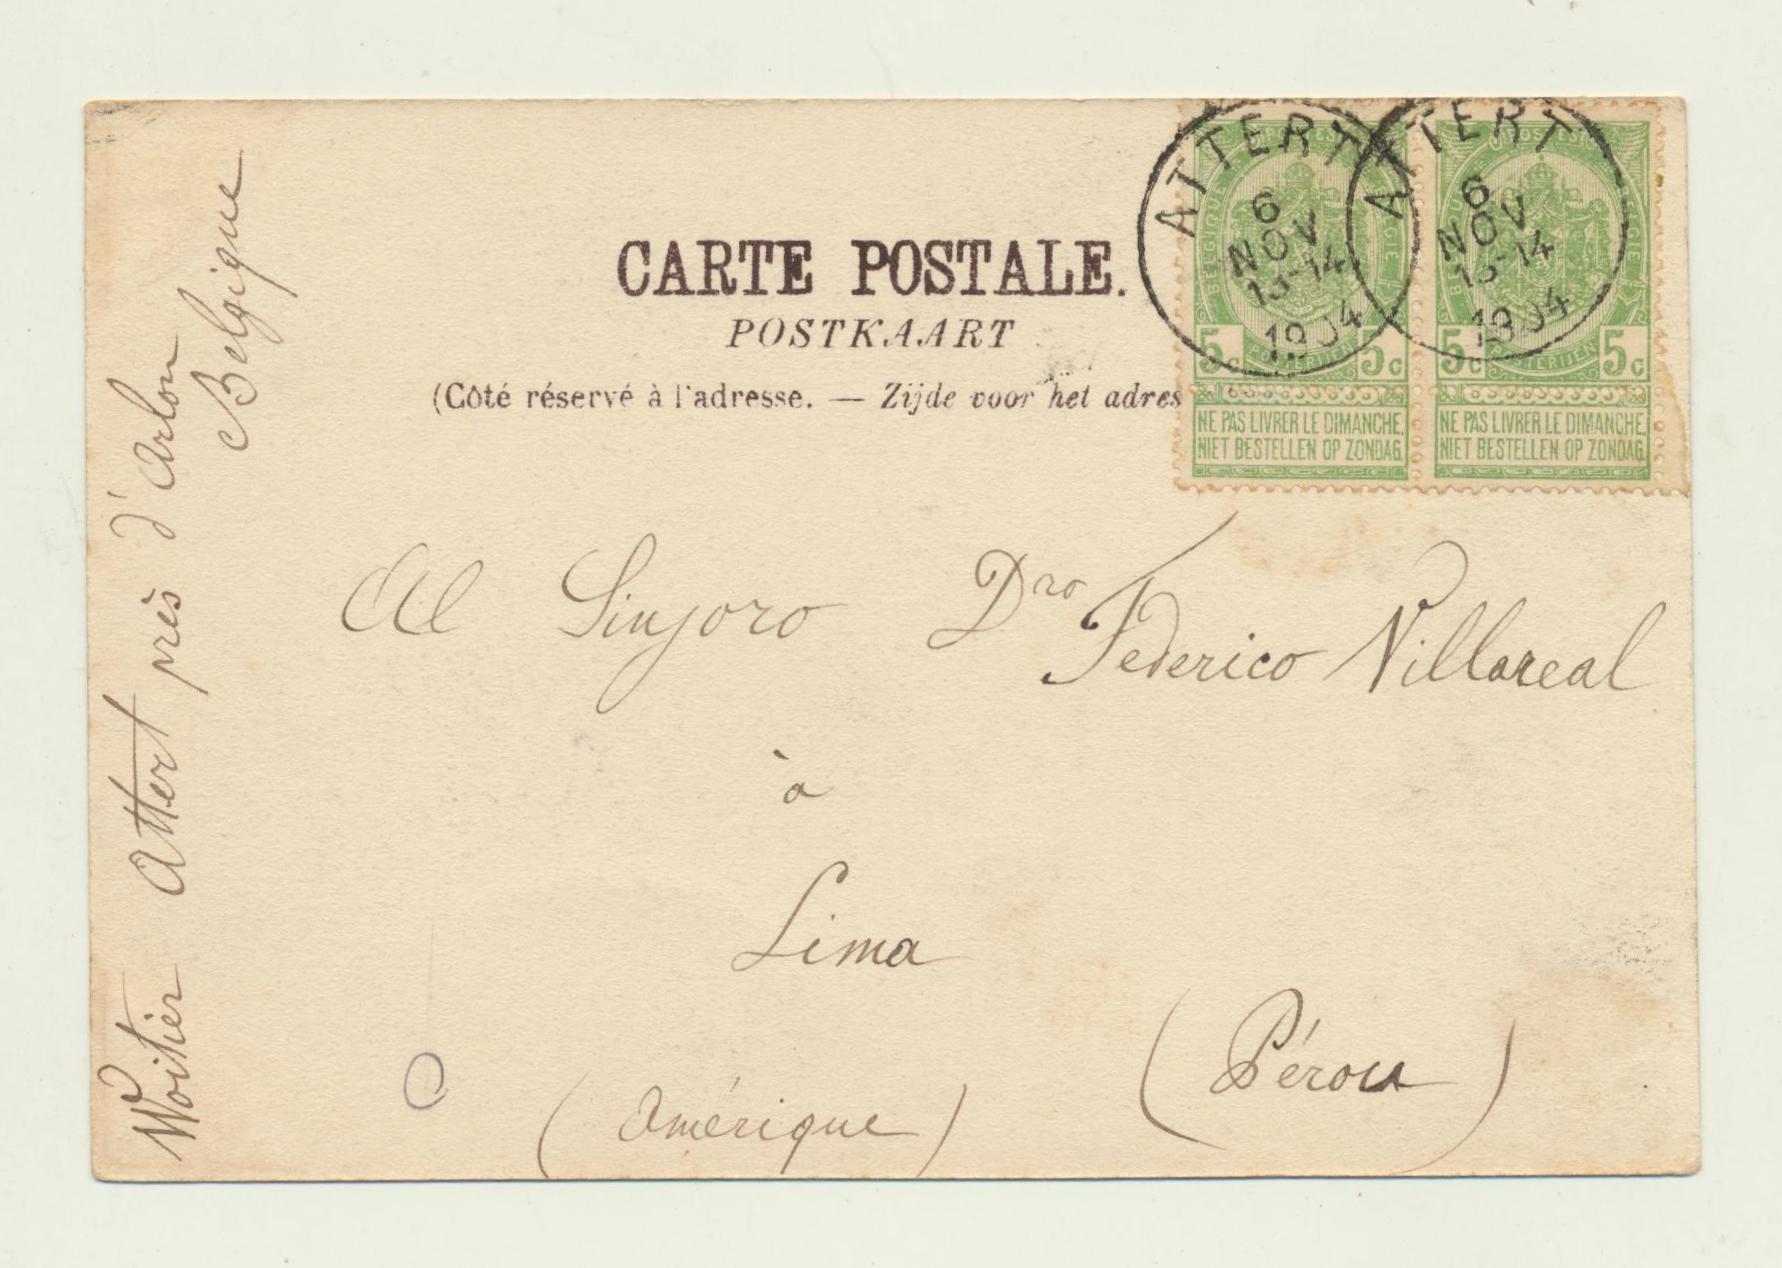 CARTE POSTALE.
POSTKAART
(Côté réservé à l'adresse. — Zijde voor het adres
ATTERT
6
NOV
13-14
1904
ATTERT
6
NOV
13-14
1904
BELGIQUE POSTES BELGIE
5c 5c
POSTERIJEN
NE PAS LIVRER LE DIMANCHE.
NIET BESTELLEN OP ZONDAG.
BELGIQUE POSTES BELGIE
5c 5c
POSTERIJEN
NE PAS LIVRER LE DIMANCHE.
NIET BESTELLEN OP ZONDAG.
Al Sinjoro Dro Federico Villareal
à
Lima
(Pérou)
(Amérique)
Woitier Attert près d'Arlon
Belgique